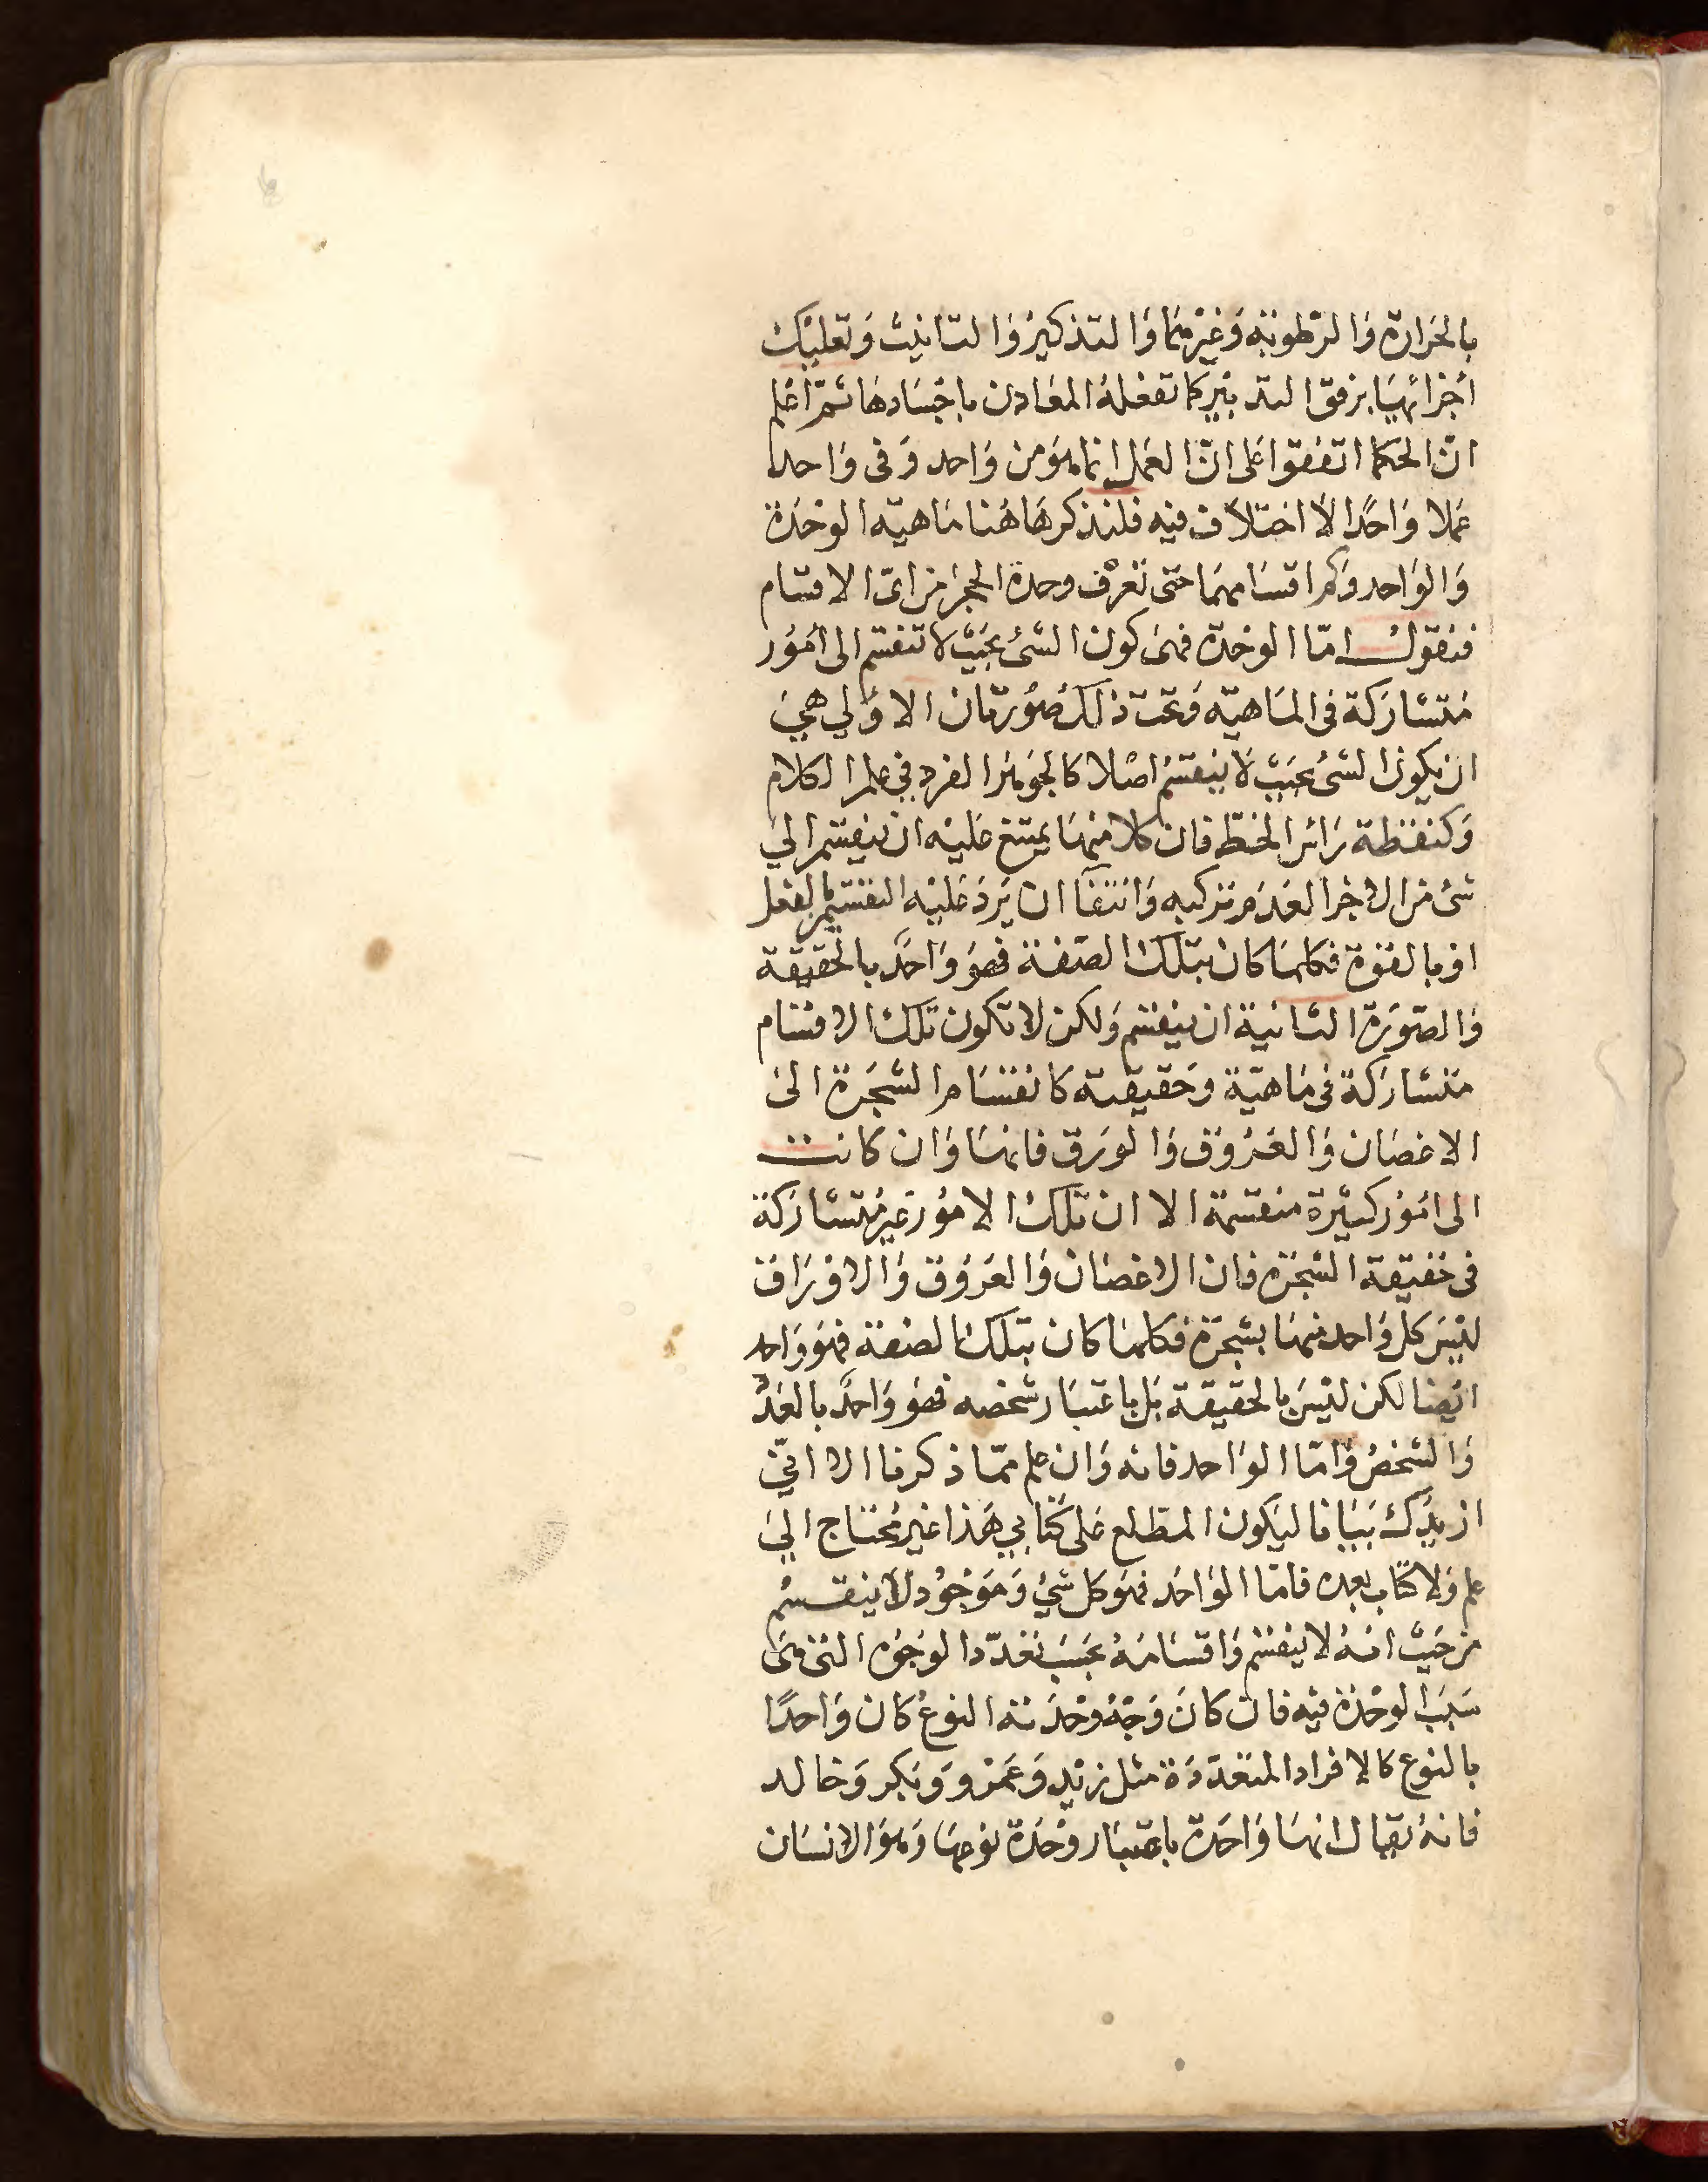 بالحَرارة وَالرّطوبَة وَغيْرهمَا وَالتذكيرْ وَالتانيث وَتعليْك
أجْزائهَا برفق التدبيْر كما تفعَلهُ المعَادن باجْسَادهَا ثمّ اعْلم
انّ الحكما اتفقوا عَلى انّ العَمل انما هوَ من وَاحد وَفى وَاحد
عَملا وَاحدًا لاَ اختلاَف فيه فلنذكر هَاهُنا مَاهيّة الوحْدَة
وَالوَاحد وَكم اقسَامهمَا حَتى نعَرْف وحدة الحجَر من اىّ الاقسَام
فنقول امّا الوَحْدَة فهىَ كون الشئ بحَيْث لا تنقسم الى أمُوْر
مُتشارَكة فى المَاهيّة وَتحت ذلك صُوْرتان الاوْلي هيَ
ان يكون الشئ بحيَث لاَ ينقسمُ اصْلا كالجوهَر الفرد في علم الكلام
وَكنقطة رَائس الخط فان كلا منهَا يمتنع عَليْه ان ينقسم اليَ
شئ من الاجْزا لعَدَم تركبه وَانتفآ ان يَرد عَليْه التقسيْم بالفعْل
اوْ بالقوّة فكلمَا كان بتلك الصّفة فهوَ وَاحدٌ بالحقيقة
وَالصّوَرة الثانية ان ينقسم وَلكن لا تكون تلك الاقسَام
متشارَكة فى مَاهيّة وحَقيقة كانقسَام الشجَرة الىَ
الاغصَان وَالعرُوَق وَالوَرق فانهَا وَان كانت
الى امُوْر كثيْرة منقسمة الا ان تلك الامُوْر غيْر مُتشارَكة
فى حَقيقة الشجَرة فان الاغصَان وَالعرَوَق وَالاوْرَاق
ليْسَ كل وَاحد منهَا بشجَرة فكلمَا كان بتلك الصفة فهوَ وَاحد
ايْضا لكن ليْسَ بالحقيقة بَل باعتبَار شخصه فهوَ وَاحدٌ بالعَدْد
وَالشخصُ وَامّا الوَاحد فانه وَان علم ممّا ذكرنا الا انىّ
ازيدَك بَيَانا ليَكون المطلع عَلى كتابي هَذا غيْر مُحتاج اليَ
علم وَلا كتاب بعده فامّا الوَاحَد فهوَ كل شئُ وَمَوْجُوْد لاَ ينقسمُ
من حَيث انهُ لا ينقسم وَاقسَامَهُ بحَسَب تعَدّد الوجُوْه التى هىَ
سَبَب الوَحْدَة فيْه فان كانَ وَجْهُ وَحْدَته النوعُ كان وَاحدًا
بالنوع كالافراد المتعَدّدَة مثل زيْد وَعَمْرو وَبَكر وَخالد
فانهُ يقال انهَا وَاحدَة باعتبَار وَحْدَة نوْعهَا وَهوَ الانسَان